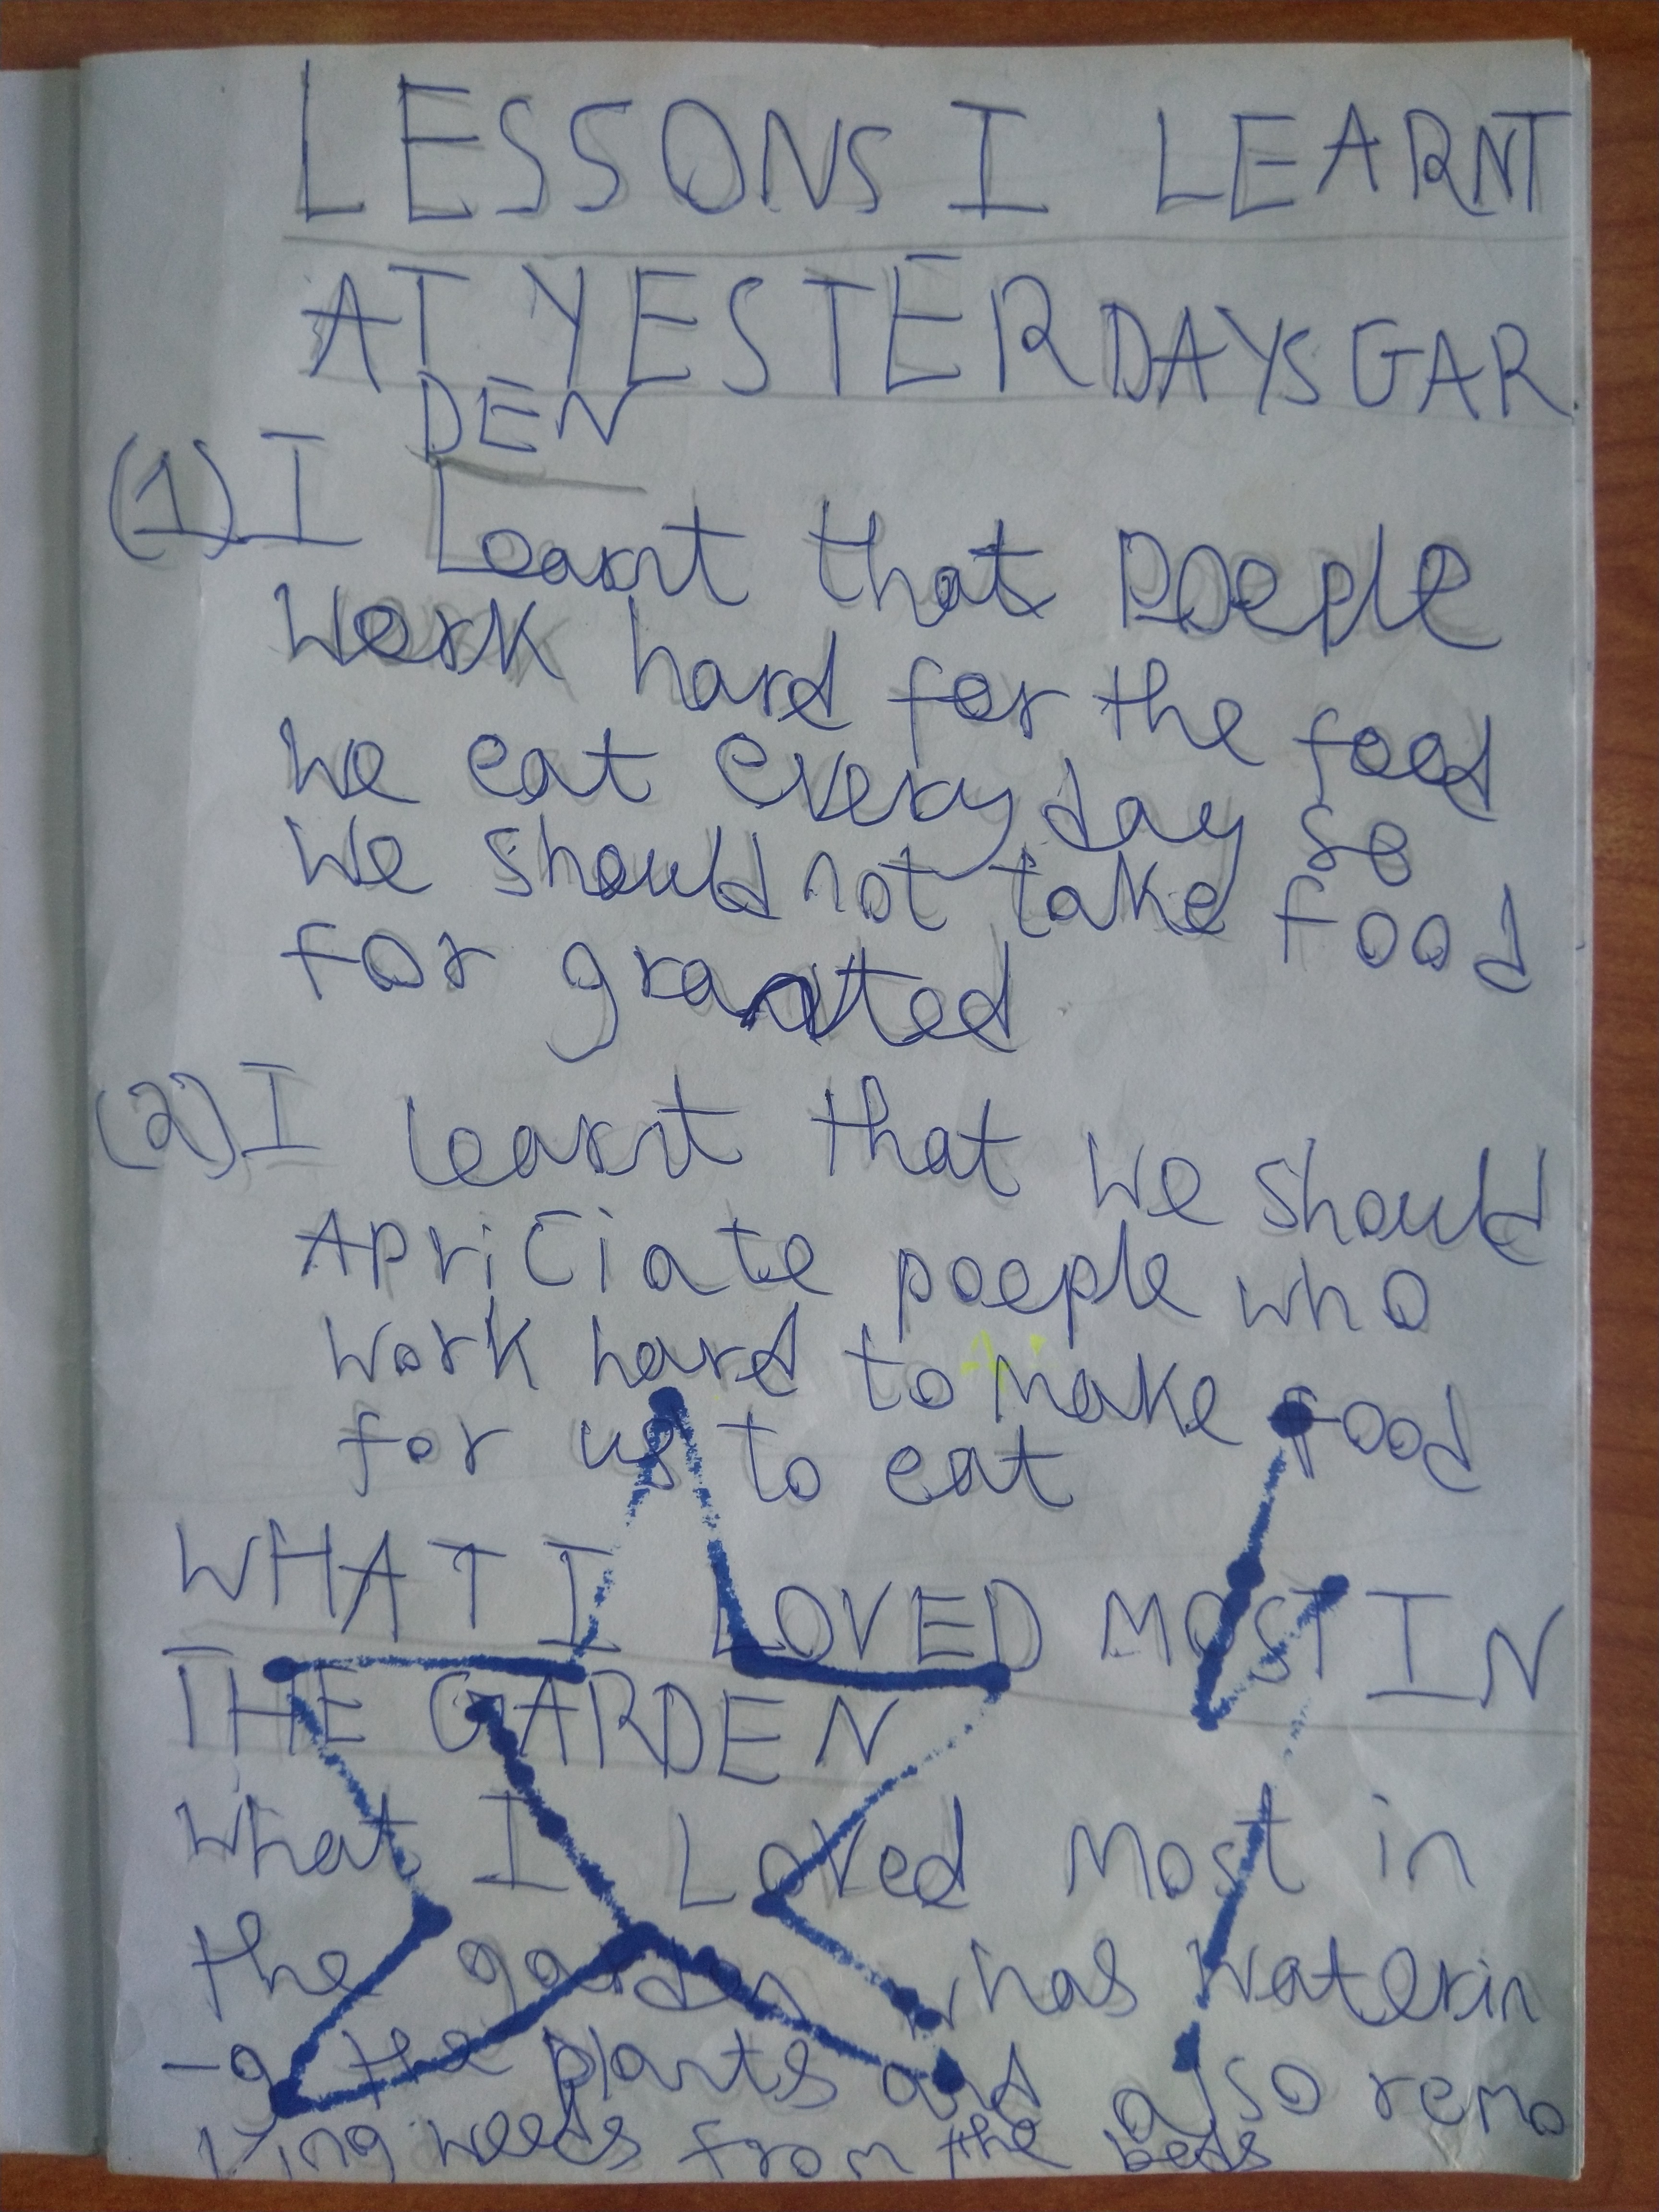 LESSONS I LEARNT
AT YESTERDAYS GAR
DEN
(1) I Learnt that poeple
Work hard for the food
We eat every day so
We should not take food
for granted
(2) I learnt that we should
Apriciate poeple who
Work hard to make food
for us to eat
WHAT I LOVED MOST IN
THE GARDEN
What I Loved Most in
the garden whas waterin
-g the plants and also remo
ving weeds from the beds